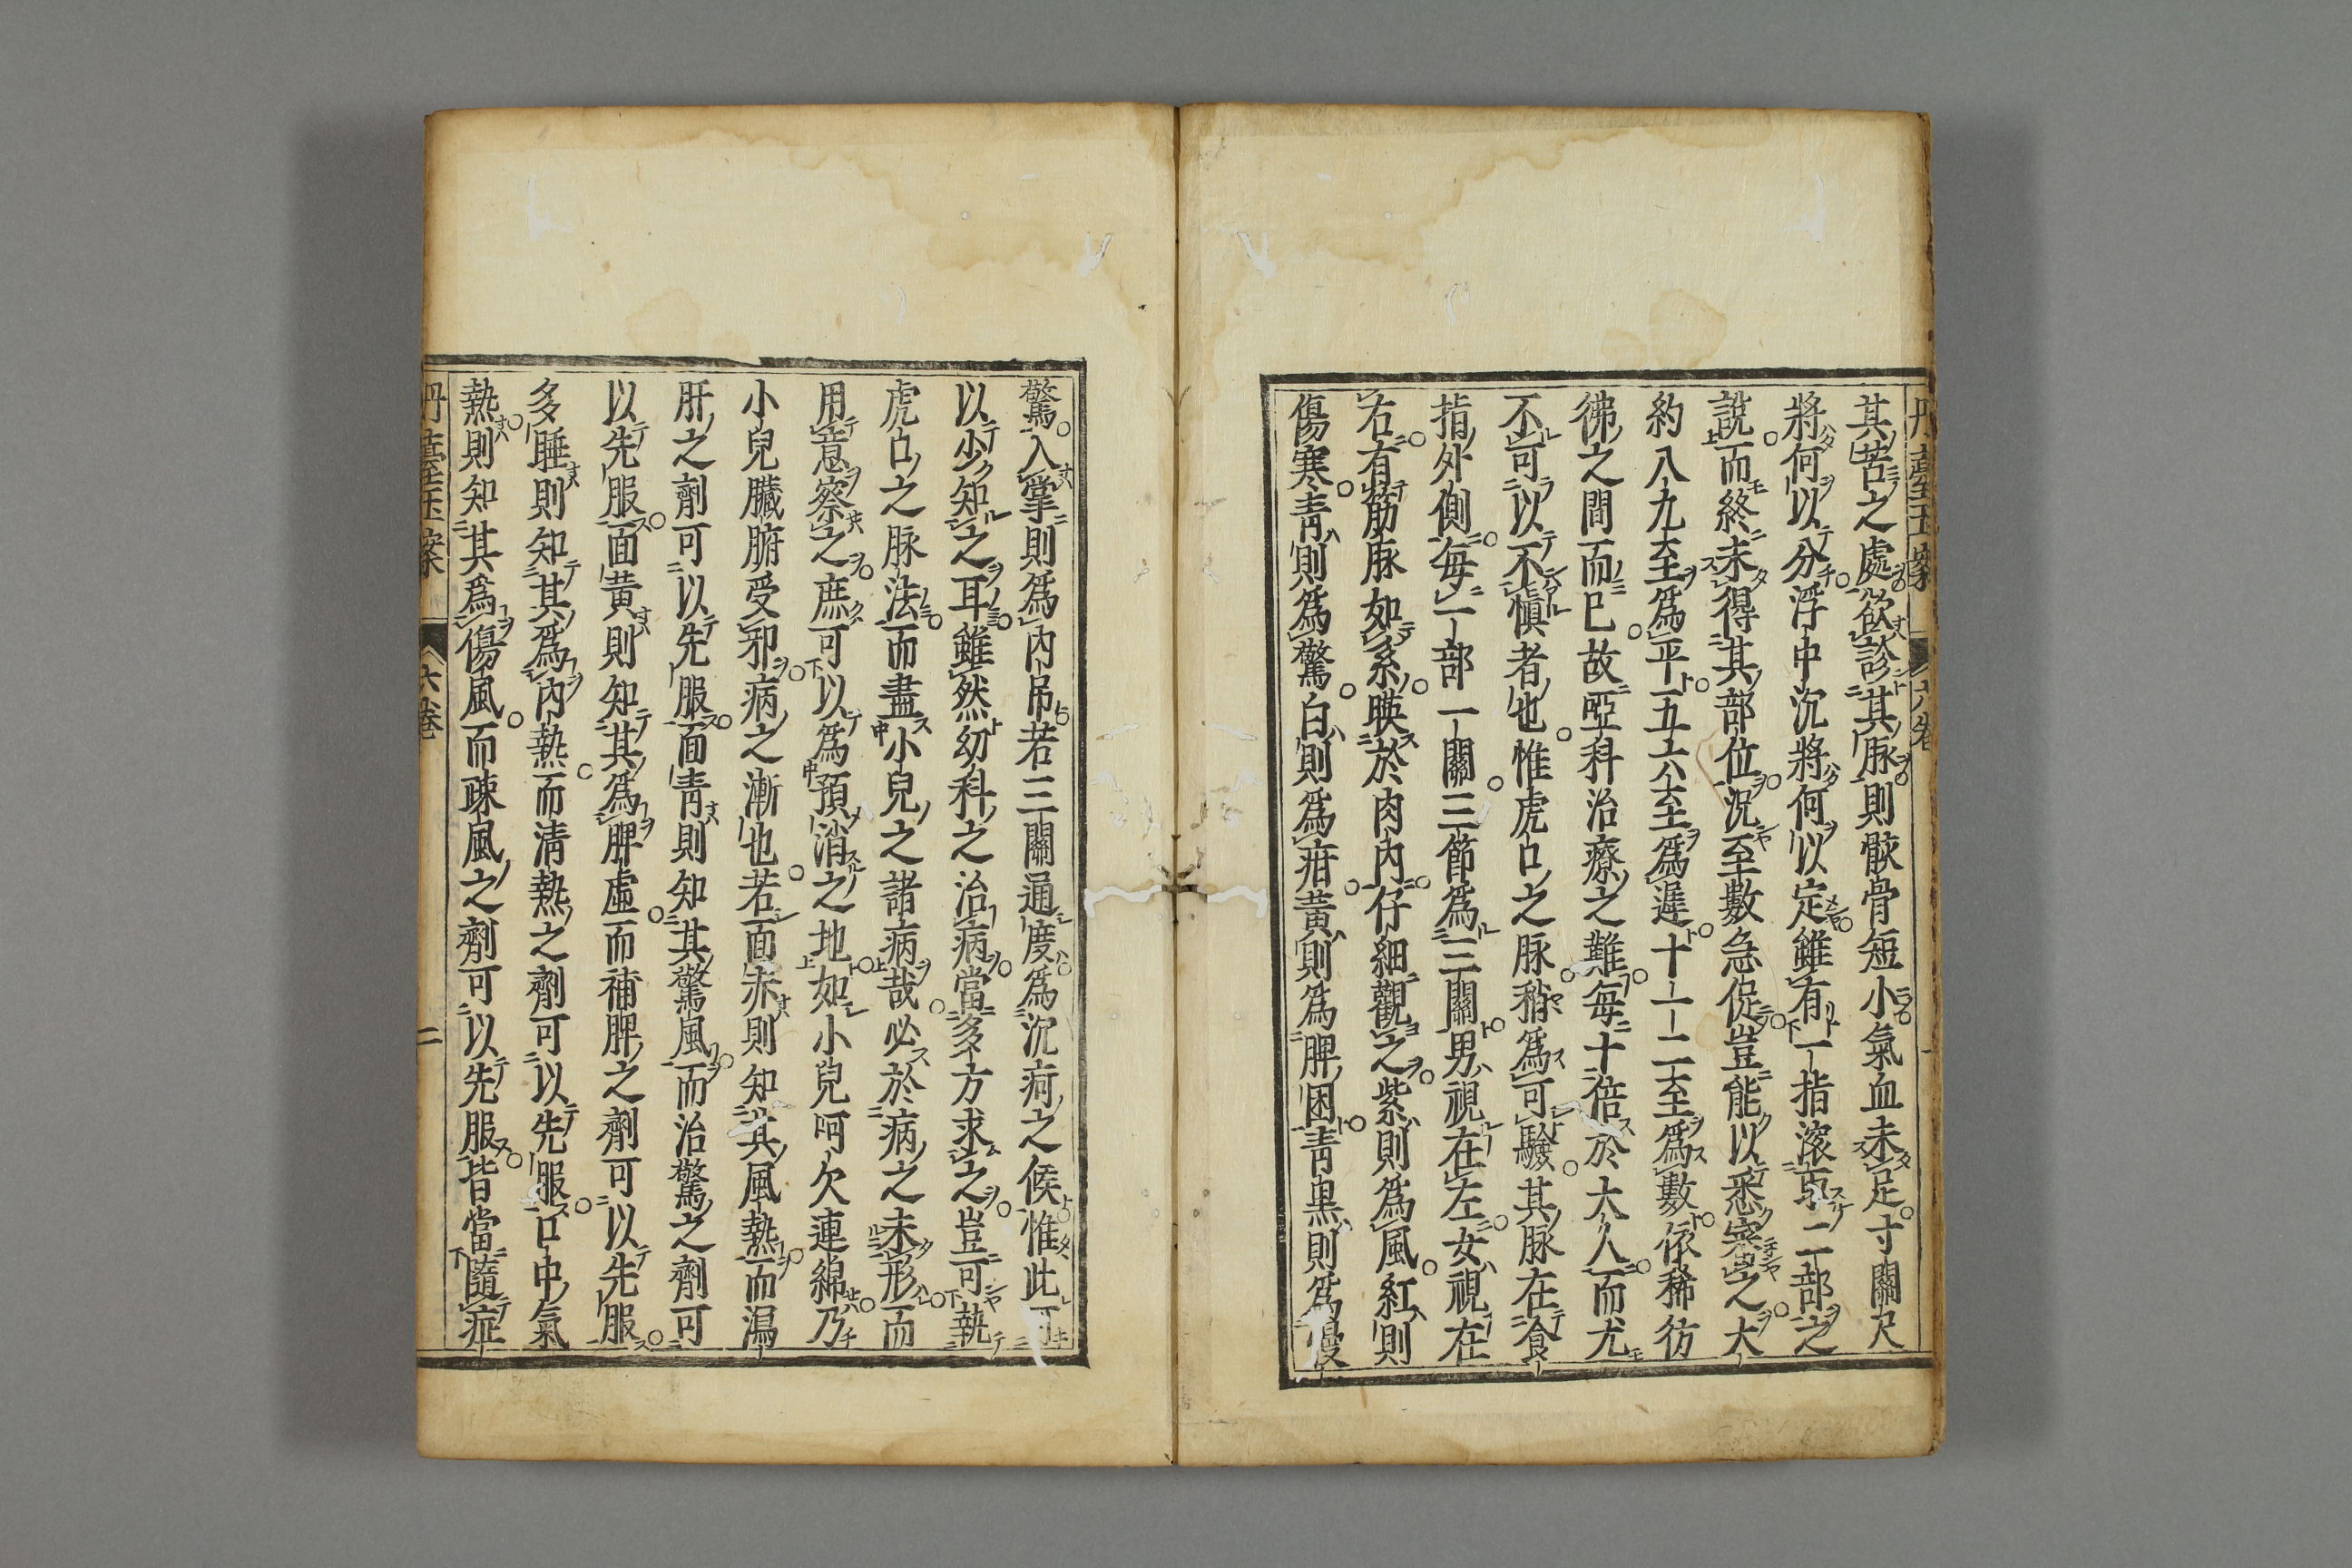 丹臺玉案 六卷
其苦之處欲診其脉則骸骨短小氣血未足寸關尺
將何以分浮中沉將何以定雖有一指滚求二部之
說而終未得其部位況至數急促豈能以悉察之大
約八九至爲平五六至爲遲十一二至爲數依稀彷
彿之間而已故啞科治療之難每十倍於大人而尤
不可以不愼者也惟虎口之脉稍爲可驗其脉在食
指外側每一部一關三節爲三關男視在左女視在
右有筋脉如系暎於肉内仔細觀之紫則爲風紅則
傷寒青則爲驚白則爲疳黄則爲脾困青黒則爲慢
驚入掌則爲内吊若三關通度爲沉疴之候惟此可
以少知之耳雖然幼科之治病當多方求之豈可執
虎口之脉法而盡小兒之諸病哉必於病之未形而
用意察之庶可以爲預消之地如小兒呵欠連綿乃
小兒臟腑受邪病之漸也若面赤則知其風熱而瀉
肝之劑可以先服面青則知其驚風而治驚之劑可
以先服面黄則知其爲脾虛而補脾之劑可以先服
多睡則知其爲内熱而清熱之劑可以先服口中氣
熱則知其爲傷風而疎風之劑可以先服皆當隨症
丹臺玉案 六卷 二